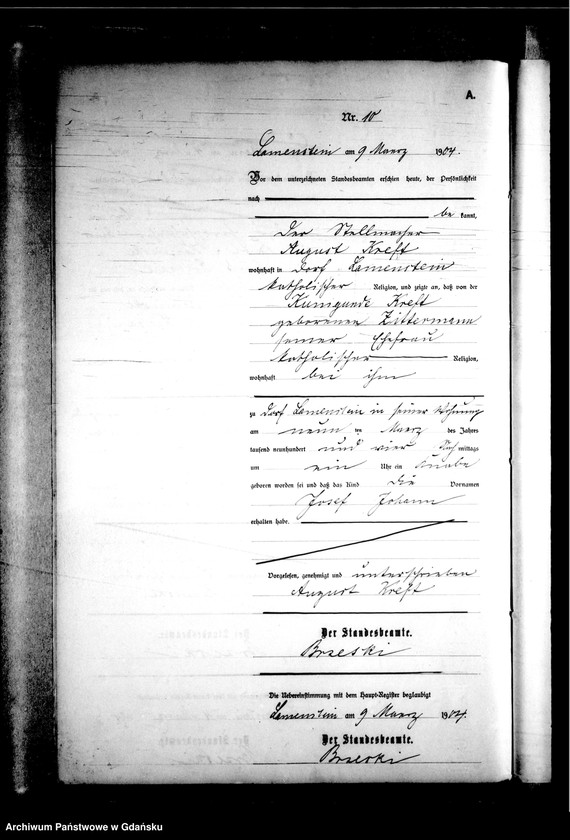 A.
Nr. 10
Lamenstein am 9 Maerz 1904.
Vor dem unterzeichneten Standesbeamten erschien heute, der Persönlichkeit
nach
be kannt,
der Stellmacher
August Kreft
wohnhaft in Dorf Lamenstein
katholischer Religion, und zeigte an, daß von der
Kunigunde Kreft
geborenen Zittermann
seiner Ehefrau
katholischer Religion,
wohnhaft bei ihm
zu Dorf Lamenstein in seiner Wohnung
am neun ten Maerz des Jahres
tausend neunhundert und vier Nach mittags
um ein Uhr ein Knabe
geboren worden sei und daß das Kind die Vornamen
Josef Johann
erhalten habe.
Vorgelesen, genehmigt und unterschrieben
August Kreft
Der Standesbeamte.
Brzeski
Die Uebereinstimmung mit dem Haupt-Register beglaubigt
Lamenstein am 9 Maerz 1904.
Der Standesbeamte.
Brzeski
Archiwum Państwowe w Gdańsku